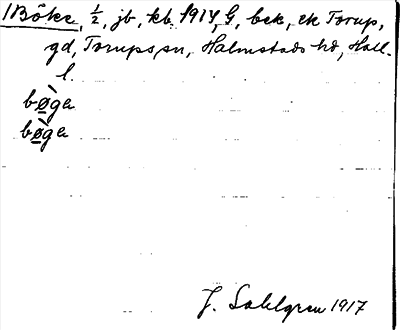 1 Böke, ½, jb, kb 1914, G, bek, ek Torup,
gd, Torups sn, Halmstads hd, Hall.
l.
bø̀gə
bø̀gə
J. Sahlgren 1917